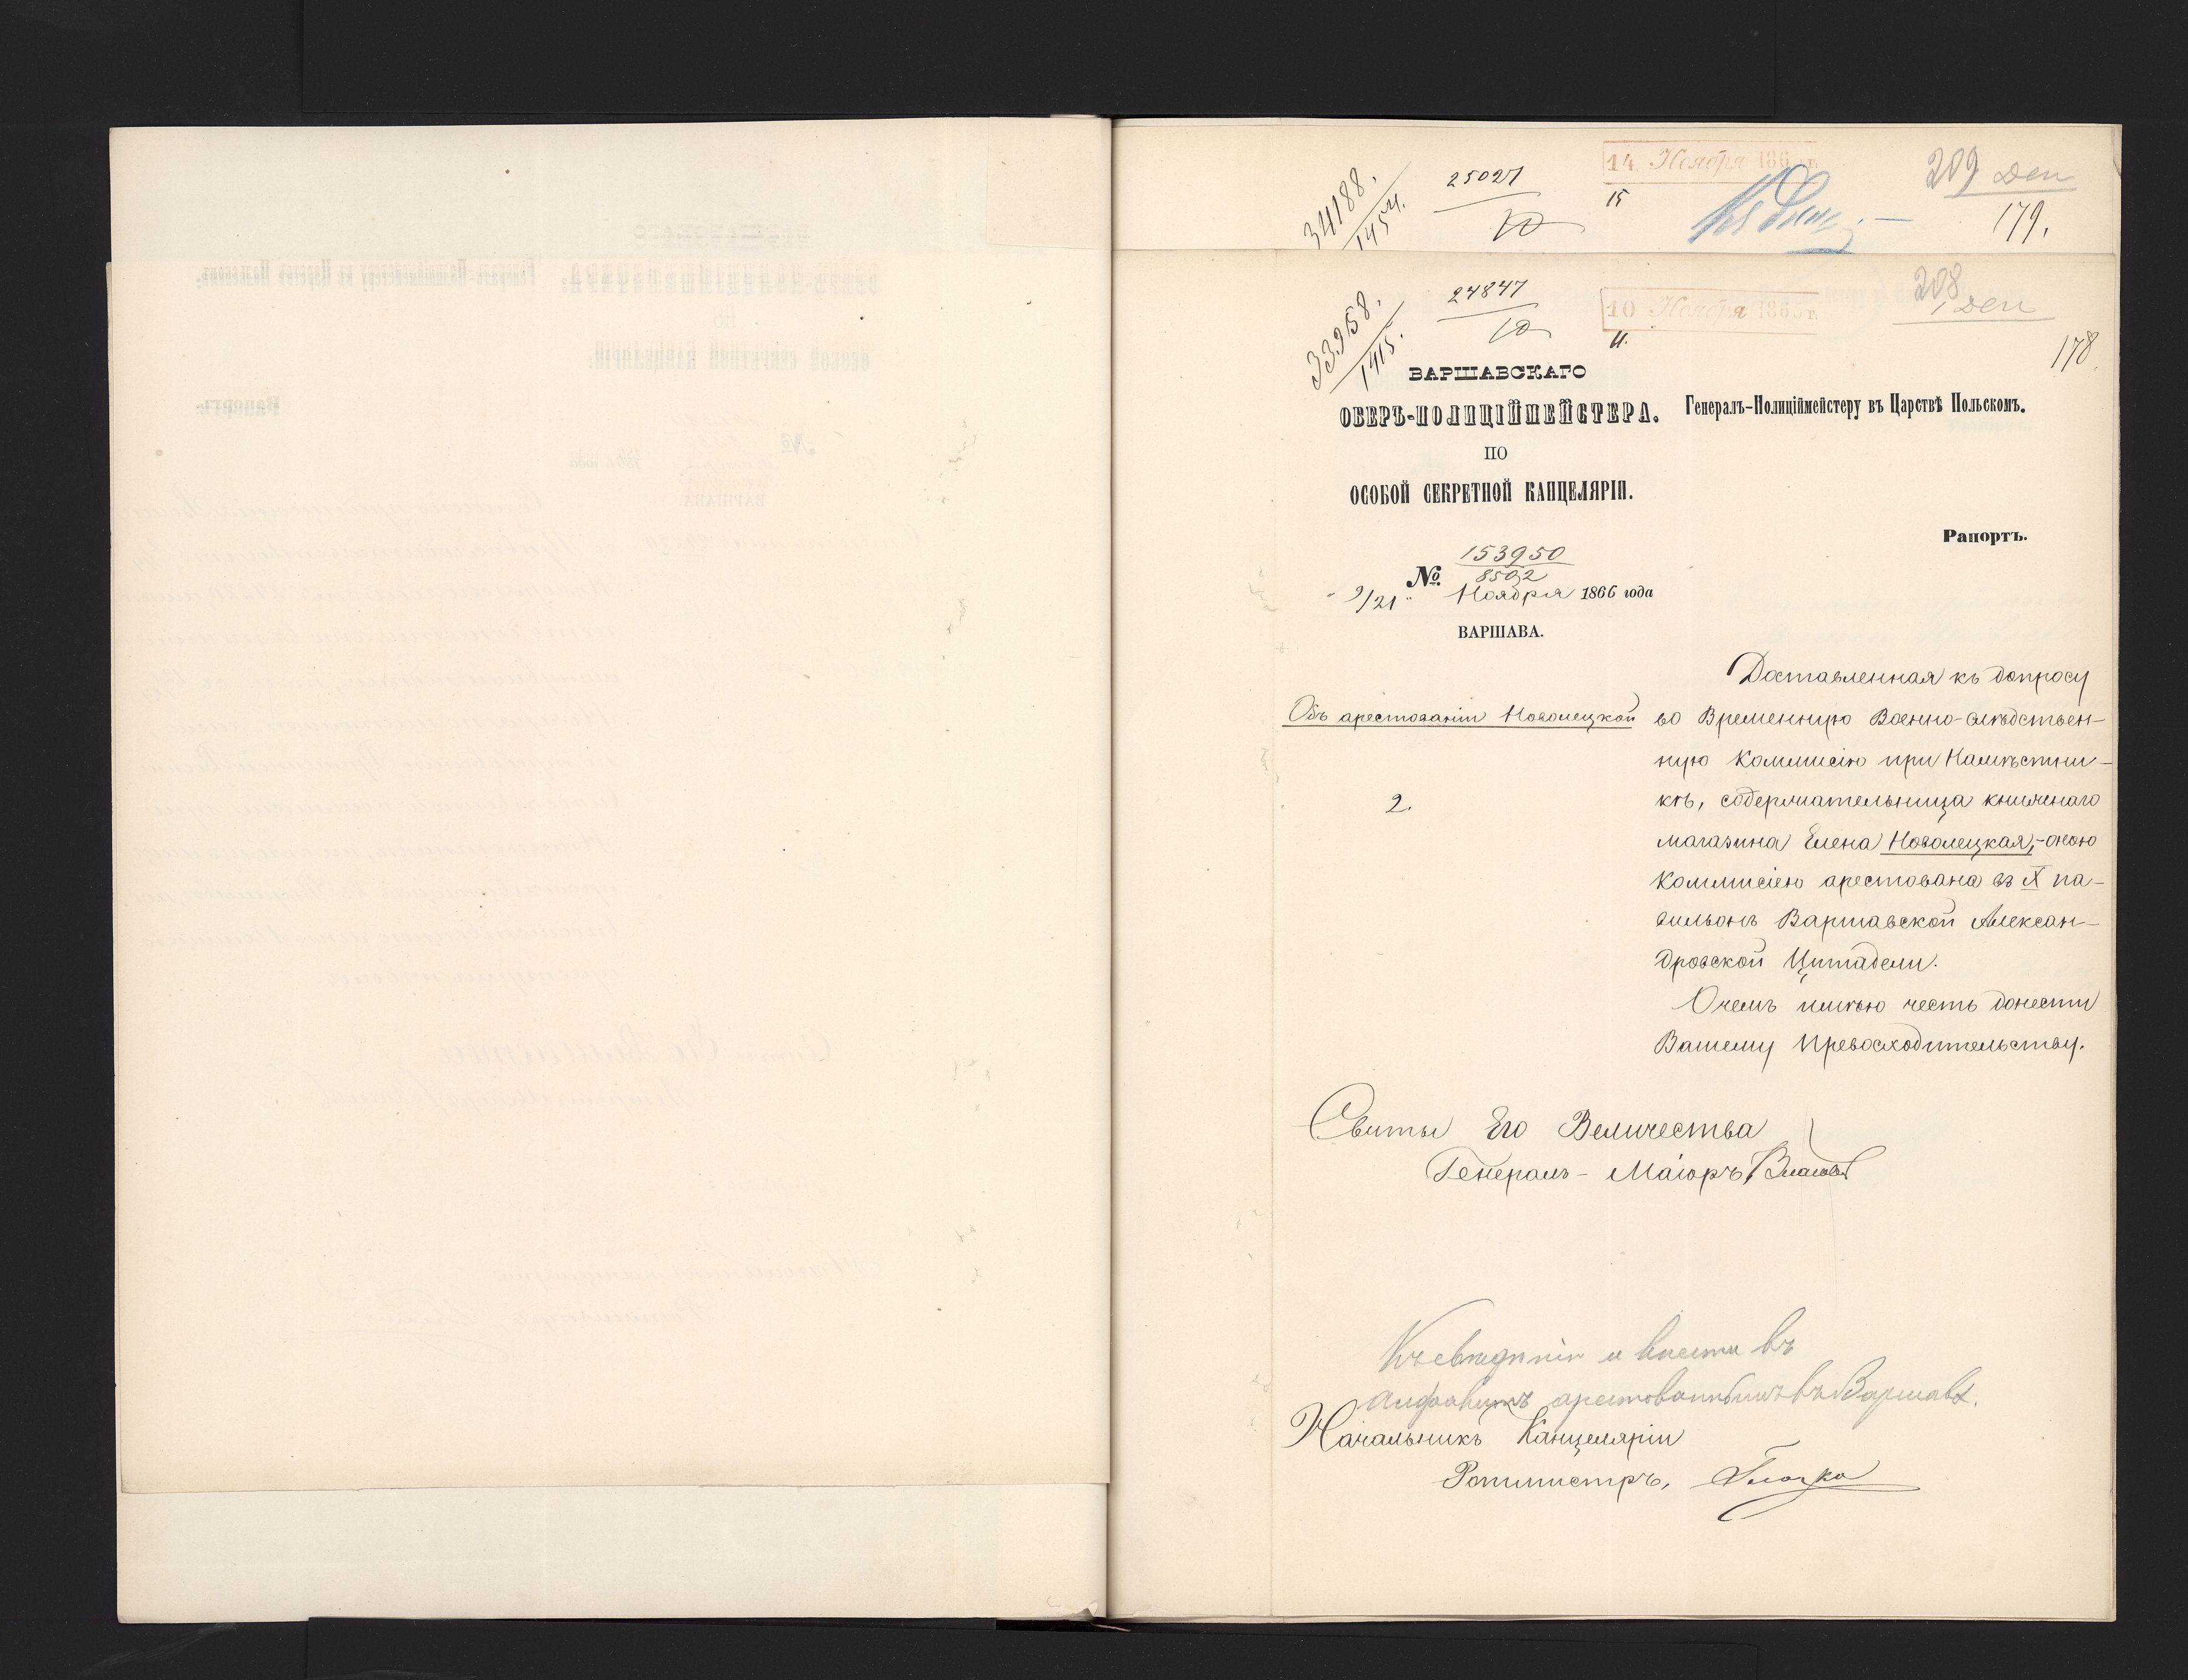 34188.
1454.
25027
10
14 Ноября 186 г.
15
209 Ден
179.
33958.
1415.
24847
10
10 Ноября 1866 г.
11.
208
1 Ден
178
ВАРШАВСКАГО
ОБЕРЪ-ПОЛИЦІЙМЕЙСТЕРА.
ПО
ОСОБОЙ СЕКРЕТНОЙ КАНЦЕЛЯРІИ.
Генералъ-Полиціймейстеру въ Царствѣ Польскомъ.
Рапортъ.
№ 153950
8502
„ 9/21 " Ноября 1866 года
ВАРШАВА.
Объ арестованіи Новолецкой
2.
Доставленная къ допросу
во Временную Военно-слѣдствен-
ную Коммисію при Намѣстни-
кѣ, содержательница книжнаго
магазина Елена Новолецкая,-оною
Коммисіею арестована въ X па-
вильонъ Варшавской Алексан-
дровской Цитадели.
Очемъ имѣю честь донести
Вашему Превосходительству.
Свиты Его Величества
Генералъ-Маіоръ Власовъ
Къ свѣдѣнію и внести въ
алфавитъ арестованнымъ въ Варшавѣ.
Начальникъ Канцеляріи
Ротмистръ,